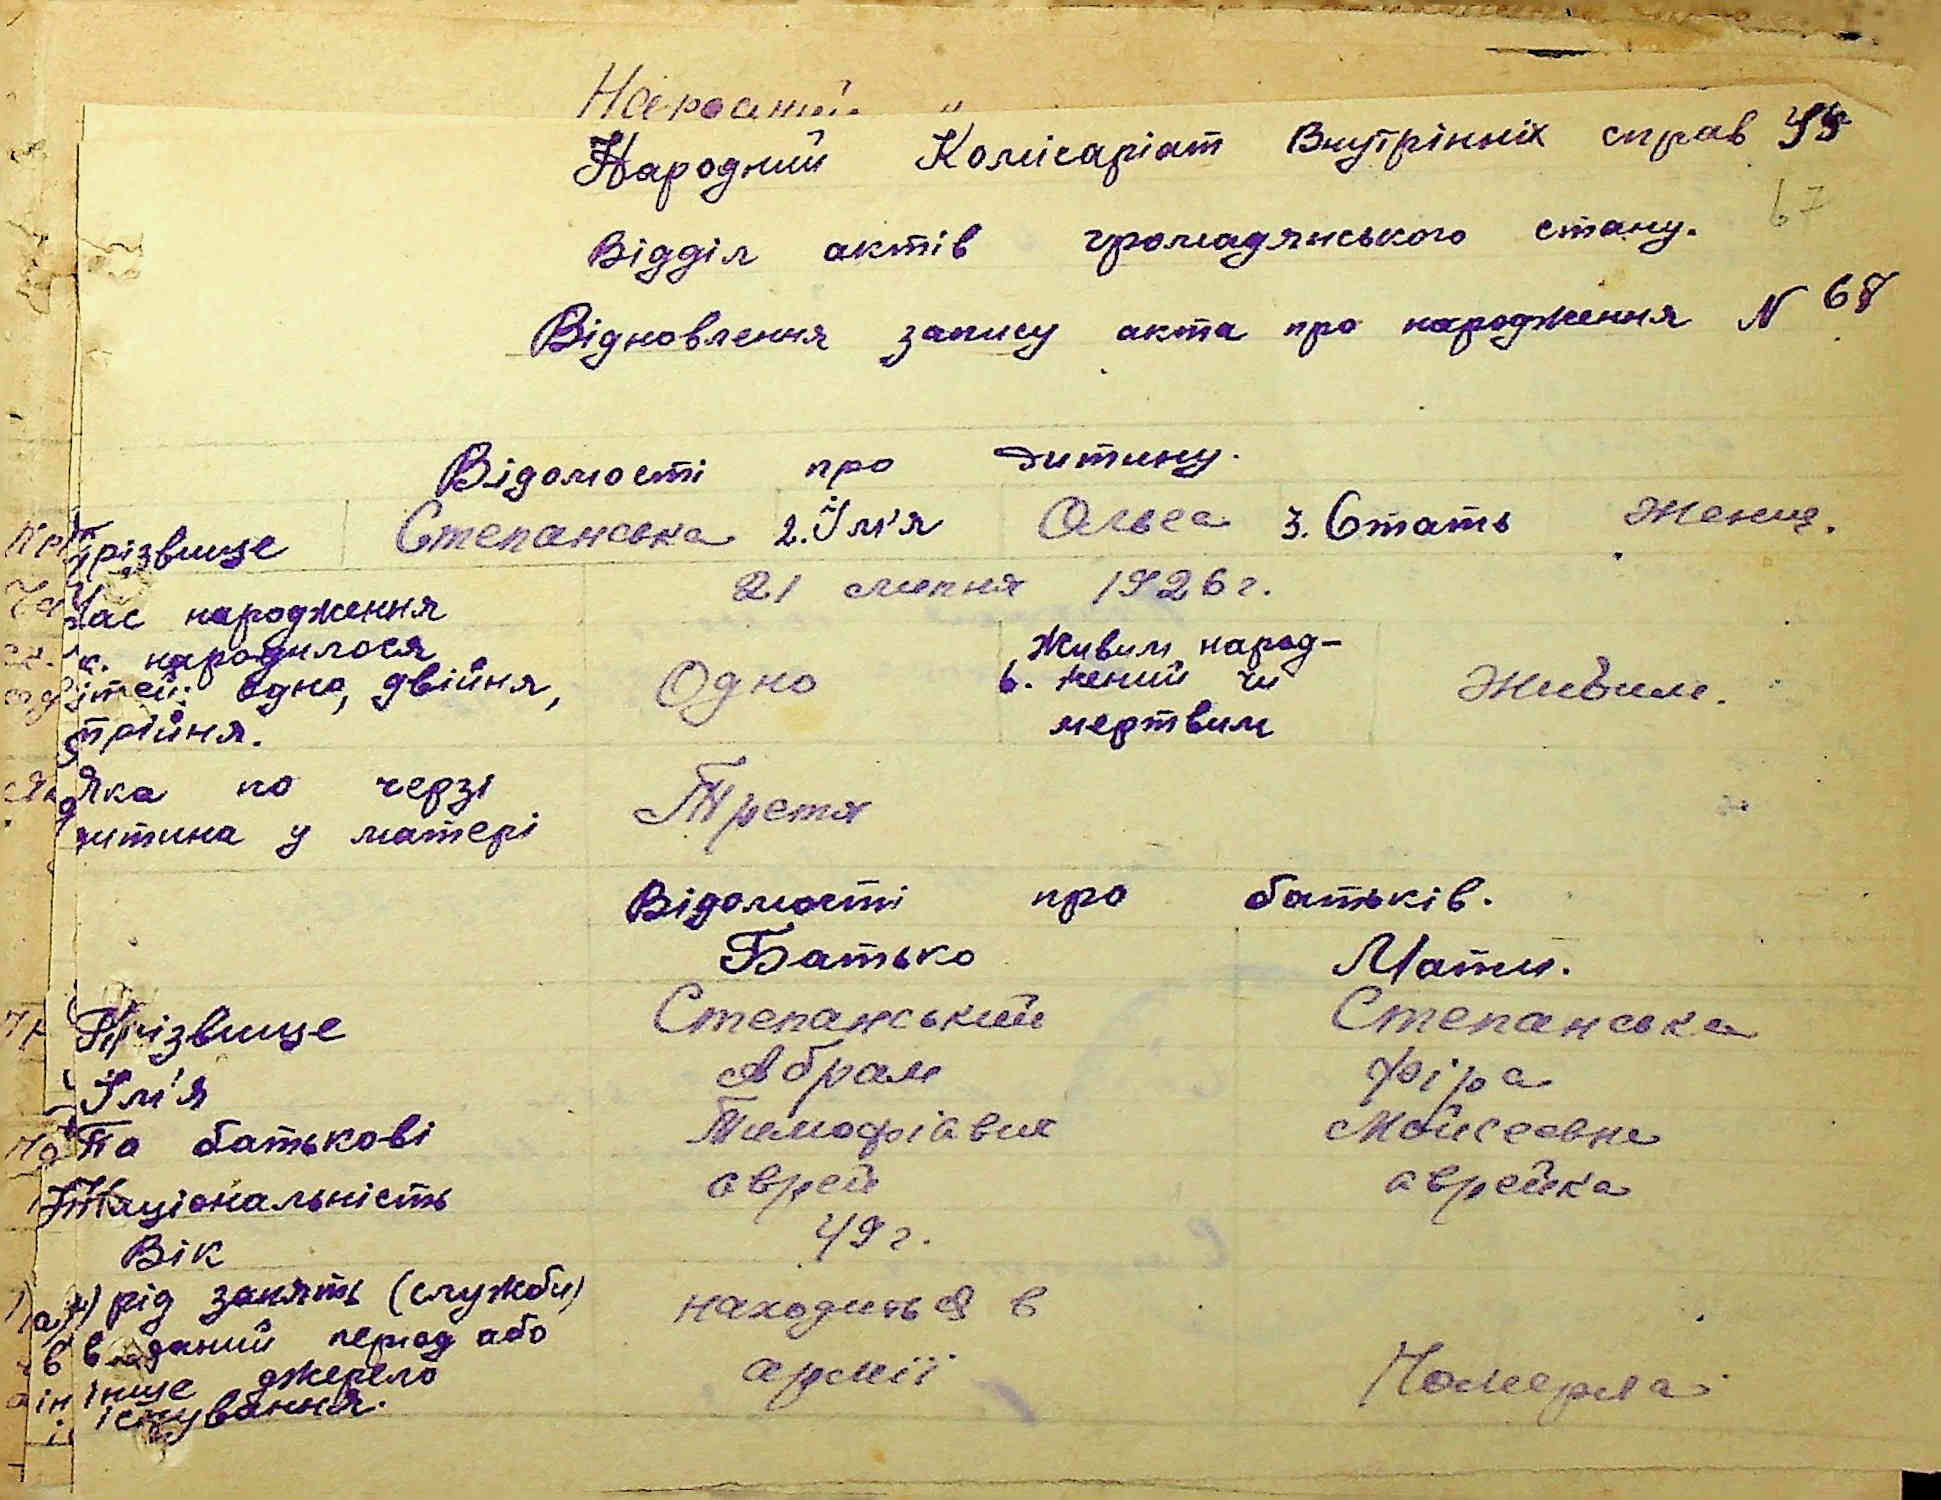 Народний Комісаріат Внутрінніх справ
67
Відділ актів громадянського стану.
Відновлення запису акта про народження N 67
Відомості про дитину.
Прізвище Степанська 2. Їм'я Ольга 3. Стать Женщ.
Час народження 21 липня 1926 г.
народилося
дітей: одно, двійня,
трійня.
Одно
Живим народ-
6. жений чи
мертвим
Живим.
Яка по черзі
дитина у матері
Третя
Відомості про батьків.
Батько Мати.
Прізвище Степанський Степанська
Їм'я Абрам Фіра
По батькові Тимофіавич Мойсеевна
Національність аврей аврейка
Вік 49 г.
рід занять (служби)
в даний період або
інше джерело
існування.
находиться в
армії
Померла